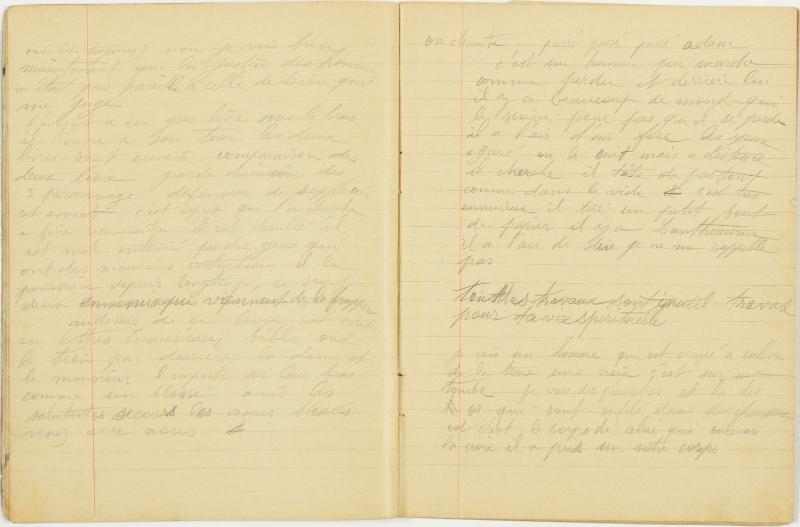 non je vois bien
maintenant que la justice des hommes
n'était pas pareille a celle de Dieu qui
me juge
a un gros livre sous le bras
il l'ouvre a son tour les deux
livres sont ouverts comparaison des
deux livre grande discussions des
3 personnage defenseur de
cet avocat c'est esprit que l'on cherche
a faire reconnaitre il est troublé il
est mal entouré par des gens qui
ont des mauvais intentions il le
poursuive depuis longtemps ce sont
deux ennemis qui viennent de le frapper
audessus de ce livre est écrit
en lettres lumineuses bible ont
le tient par derriere la dame et
le monsieur l'emporte sur leur bras
comme un blessé amis les
salutistes secours les ames blessés
venez avec nous
on chante passé passé passé adam
c'est un homme qui marche
comme perdu et derriere lui
il y a beaucoup de monde qui
le suive pour pas qu'il se perde
il a l'air d'un fou les yeux
egaré on le suit mais a distance
il cherche il tâte de partout
comme dans le vide c'est tres
ennuieux il tire un petit bout
de papier il y a Lantheaume
il a l'air de dire je ne me rappelle
pas
tout les travaux sont inutil travail
pour ta vie spirituelle
je vois un homme qui est occupé a enlever
de la terre une croix c'est sur une
tombe je vois des planches et la des
os qui sont entile dans des
est c'est le corps de celui qui enlevai
la croix il a pris un autre corps